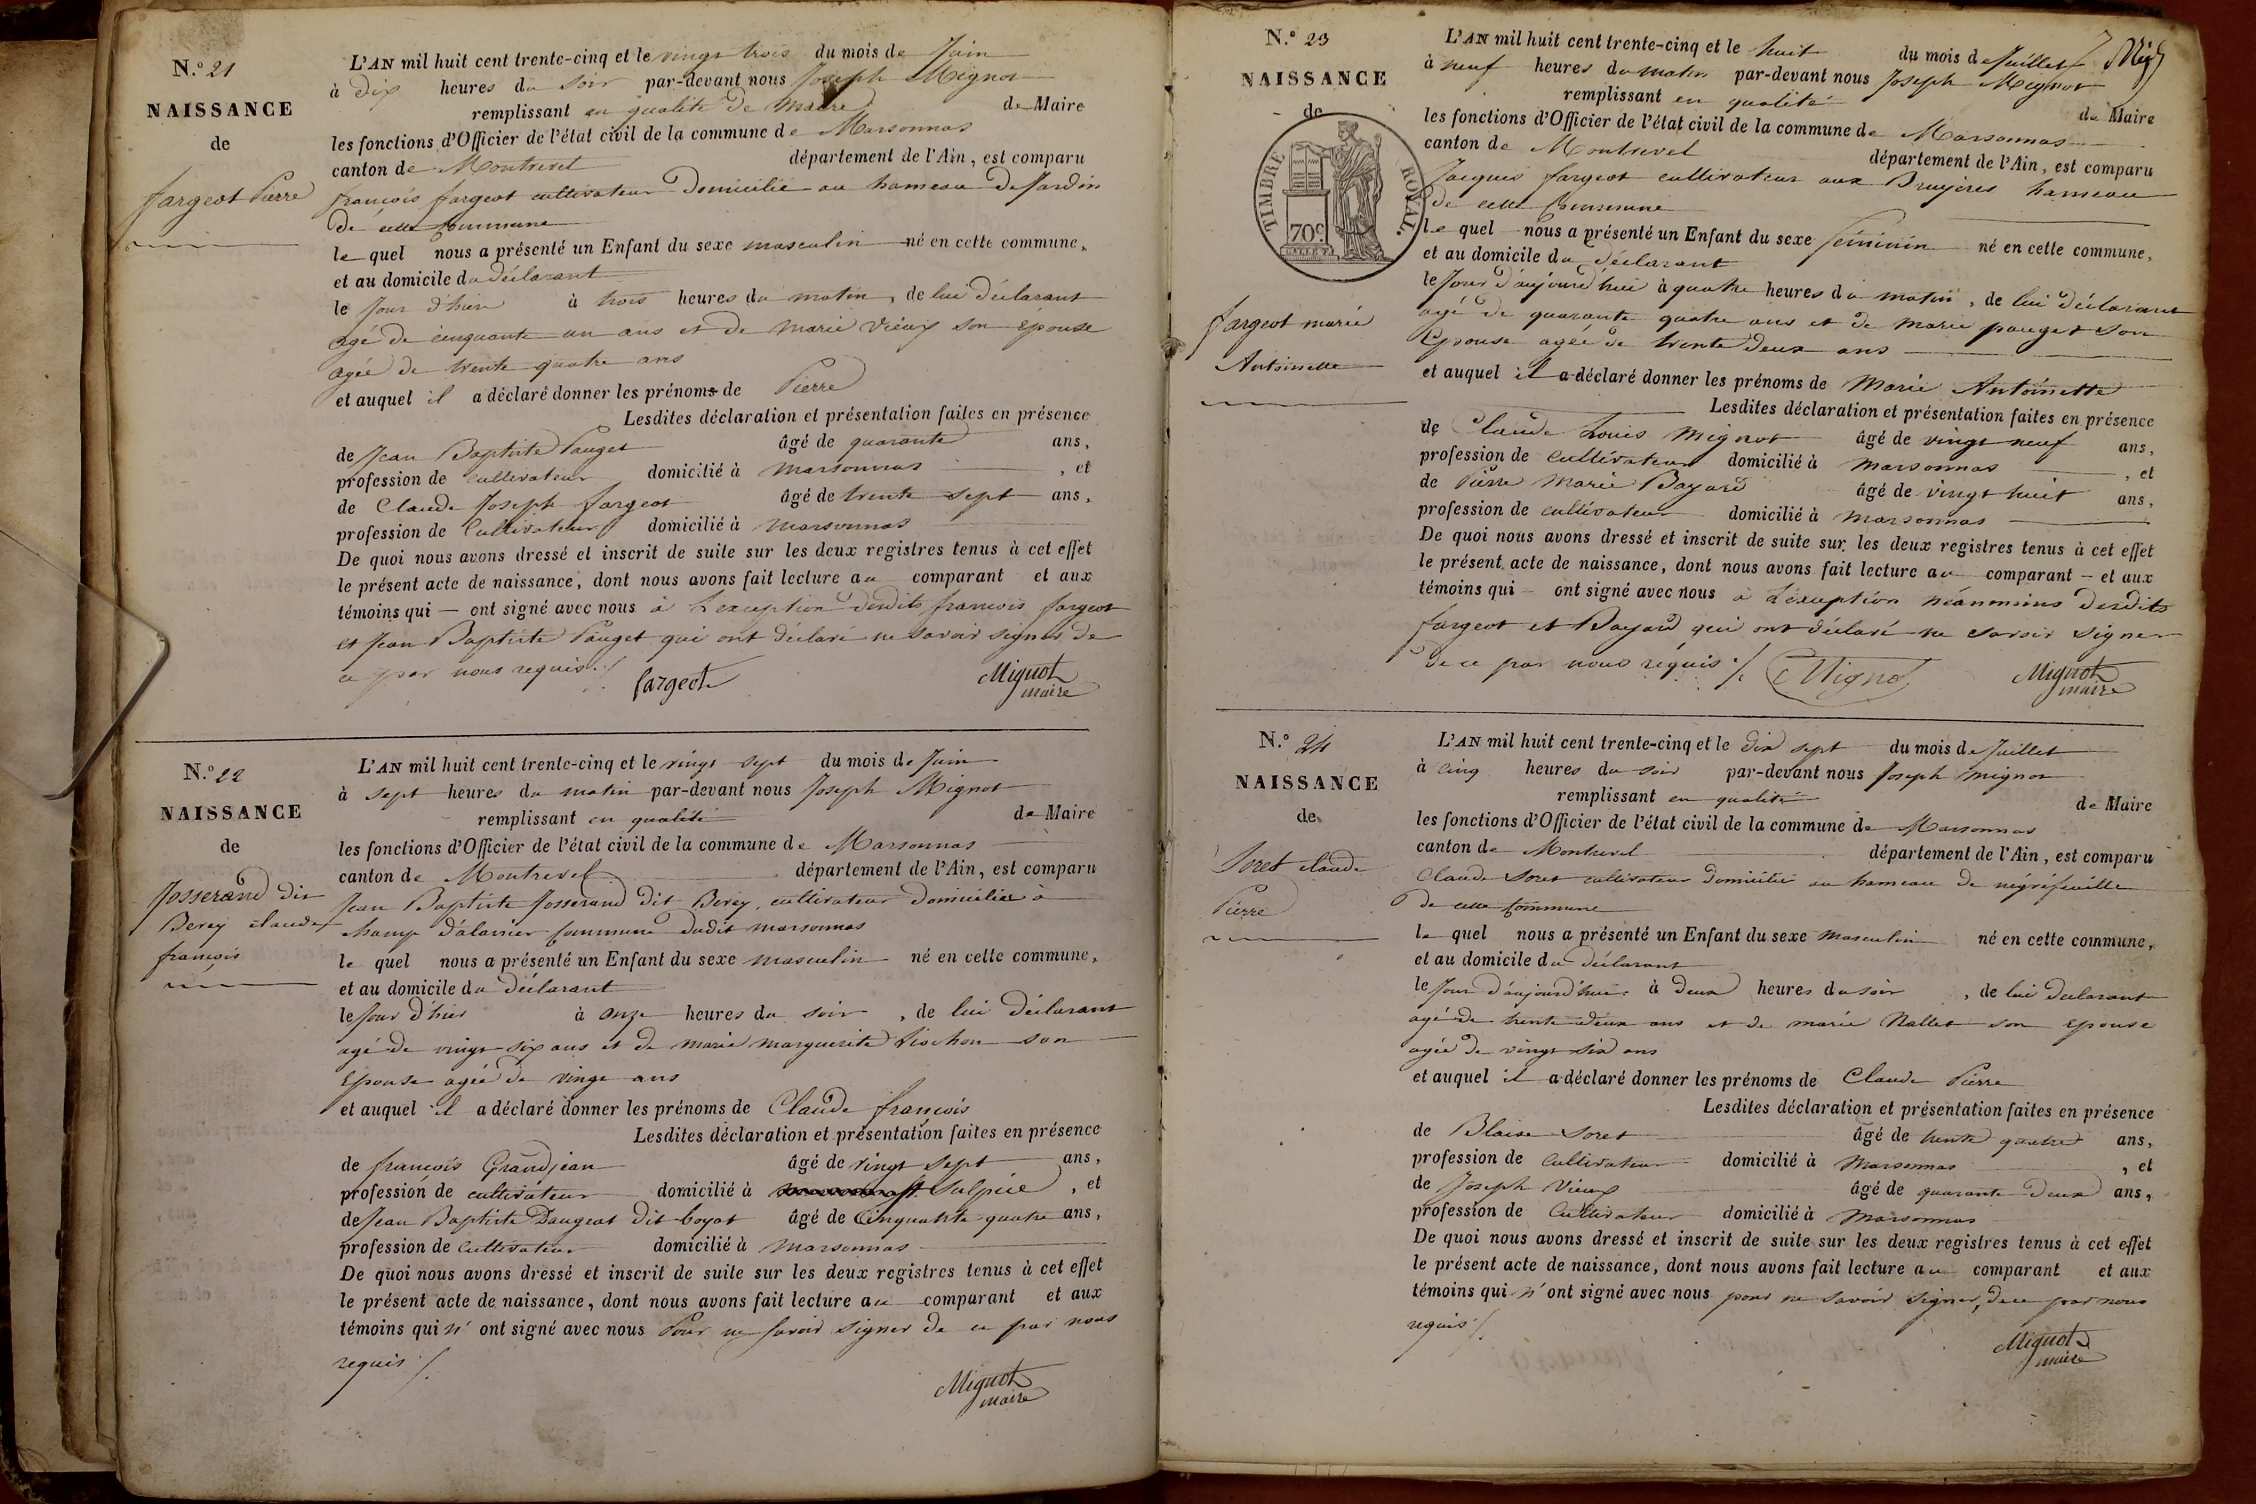 N.° 21
NAISSANCE
de
fargeot Pierre
L'AN mil huit cent trente-cinq et le vingt trois du mois de Juin
à dix heures du soir par-devant nous Joseph Mignot
remplissant en qualité de Maire de Maire
les fonctions d'Officier de l'état civil de la commune de Marsonnas
canton de Montrevel département de l'Ain, est comparu
françois fargeot cultivateur domicilié au hameau De Jardin
de cette Commune
le quel nous a présenté un Enfant du sexe masculin né en cette commune,
et au domicile du déclarant
le Jour d'hier à trois heures du matin, de lui déclarant
agé de cinquante un ans et de marie Vieux son épouse
agée de trente quatre ans
et auquel il a déclaré donner les prénoms de Pierre
Lesdites déclaration et présentation faites en présence
de Jean Baptiste Pauget âgé de quarante ans,
profession de cultivateur domicilié à marsonnas, et
de Claude Joseph fargeot âgé de trente sept ans,
profession de Cultivateur domicilié à marsonnas
De quoi nous avons dressé et inscrit de suite sur les deux registres tenus à cet effet
le présent acte de naissance, dont nous avons fait lecture au comparant et aux
témoins qui — ont signé avec nous à L'exception desdits françois fargeot
et Jean Baptiste Pauget qui ont déclaré ne savoir signer de
ce par nous requis ./.
fargeot Mignot
maire
N.° 22
NAISSANCE
de
Josserand dit
Berey claude
françois
L'AN mil huit cent trente-cinq et le vingt sept du mois de Juin
à sept heures du matin par-devant nous Joseph Mignot
remplissant en qualité de Maire
les fonctions d'Officier de l'état civil de la commune de Marsonnas
canton de Montrevel département de l'Ain, est comparu
Jean Baptiste Josserand dit Berey, cultivateur domicilié à
champ d'alanier Commune dudit marsonnas
le quel nous a présenté un Enfant du sexe masculin né en cette commune,
et au domicile du déclarant
le Jour d'hier à onze heures du soir, de lui déclarant
agé de vingt six ans et de marie marguerite Liochon son
Epouse agée de vingt ans
et auquel il a déclaré donner les prénoms de Claude françois
Lesdites déclaration et présentation faites en présence
de françois Grandjean âgé de vingt sept ans,
profession de cultivateur domicilié à st. Sulpice, et
de Jean Baptiste Daugeat Dit boyat âgé de Cinquante quatre ans,
profession de Cultivateur domicilié à marsonnas
De quoi nous avons dressé et inscrit de suite sur les deux registres tenus à cet effet
le présent acte de naissance, dont nous avons fait lecture au comparant et aux
témoins qui n'ont signé avec nous Pour ne savoir signer de ce par nous
requis ./.
Mignot
maire
N.° 23
NAISSANCE
de
TIMBRE ROYAL.
70c
fargeot marie
Antoinette
L'AN mil huit cent trente-cinq et le huit du mois de Juillet
à neuf heures du matin par-devant nous Joseph Mignot
remplissant en qualité de Maire
les fonctions d'Officier de l'état civil de la commune de Marsonnas
canton de Montrevel département de l'Ain, est comparu
Jacques fargeot cultivateur aux Bruyères hameau
de cette Commune
le quel nous a présenté un Enfant du sexe féminin né en cette commune,
et au domicile du déclarant
le Jour d'aujourd'hui à quatre heures du matin, de lui déclarant
agé de quarante quatre ans et de marie pauget son
Epouse agée de trente deux ans
et auquel il a déclaré donner les prénoms de Marie Antoinette
Lesdites déclaration et présentation faites en présence
de Claude Louis Mignot âgé de vingt neuf ans,
profession de Cultivateur domicilié à Marsonnas, et
de Pierre Marie Bayard âgé de vingt huit ans,
profession de cultivateur domicilié à Marsonnas
De quoi nous avons dressé et inscrit de suite sur les deux registres tenus à cet effet
le présent acte de naissance, dont nous avons fait lecture au comparant — et aux
témoins qui — ont signé avec nous à L'exception néanmoins desdits
fargeot et Bayard qui ont déclaré ne savoir signer
de ce par nous réquis ./. Mignot Mignot
maire
N.° 24
NAISSANCE
de
Soret claude
Pierre
L'AN mil huit cent trente-cinq et le dix sept du mois de Juillet
à cinq heures du soir par-devant nous Joseph mignot
remplissant en qualité de Maire
les fonctions d'Officier de l'état civil de la commune de Marsonnas
canton de Montrevel département de l'Ain, est comparu
Claude Soret cultivateur domicilié au hameau de négréfeuille
de cette Commune
le quel nous a présenté un Enfant du sexe masculin né en cette commune,
et au domicile du déclarant
le Jour d'aujourd'hui à deux heures du soir, de lui déclarant
agé de trente deux ans et de marie Nallet son Epouse
agée de vingt six ans
et auquel il a déclaré donner les prénoms de Claude Pierre
Lesdites déclaration et présentation faites en présence
de Blaise Soret âgé de trente quatre ans,
profession de Cultivateur domicilié à Marsonnas, et
de Joseph Vieux âgé de quarante deux ans,
profession de Cultivateur domicilié à marsonnas
De quoi nous avons dressé et inscrit de suite sur les deux registres tenus à cet effet
le présent acte de naissance, dont nous avons fait lecture au comparant et aux
témoins qui n'ont signé avec nous pour ne savoir signer, de ce par nous
requis ./.
Mignot
maire